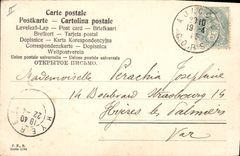 Carte postale
Postkarte — Cartolina postale
Levelező-Lap — Post card — Briefkaart
Brefkort — Tarjeta postal
Dopisnice — Karta Korespondencyjna
Correspondenzkarte — Dopisnica
Weltpostverein
Union postale universelle — Union postale universelle
ОТКРЫТОЕ ПИСЬМО.
Mademoiselle Perachia Joséphine
14 Boulevard Strasbourg 14
Hyères les Palmiers
Var